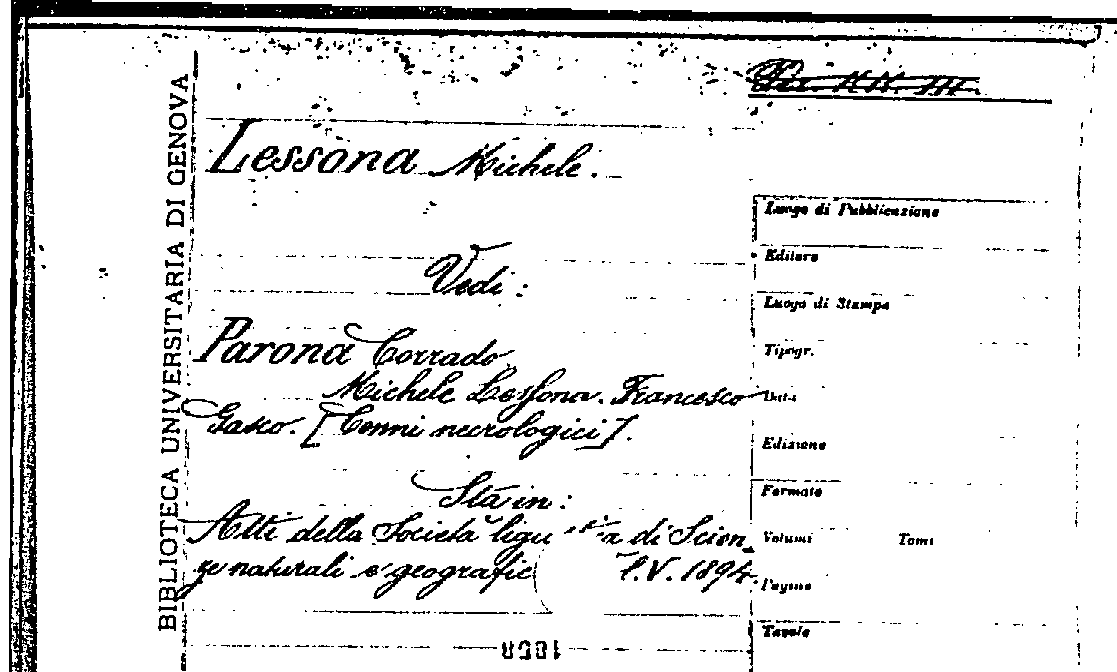 BIBLIOTECA UNIVERSITARIA DI GENOVA
Lessona Michele.
Vedi:
Parona Corrado
Michele Lessona. Francesco
Gasco. [Cenni necrologici].
Sta in:
Atti della Società ligu a di Scien_
ze naturali e geografic V. 1894.
Luogo di Pubblicazione
Editore
Luogo di Stampa
Tipogr.
Data
Edizione
Formato
Volumi Tomi
Pagine
Tavole